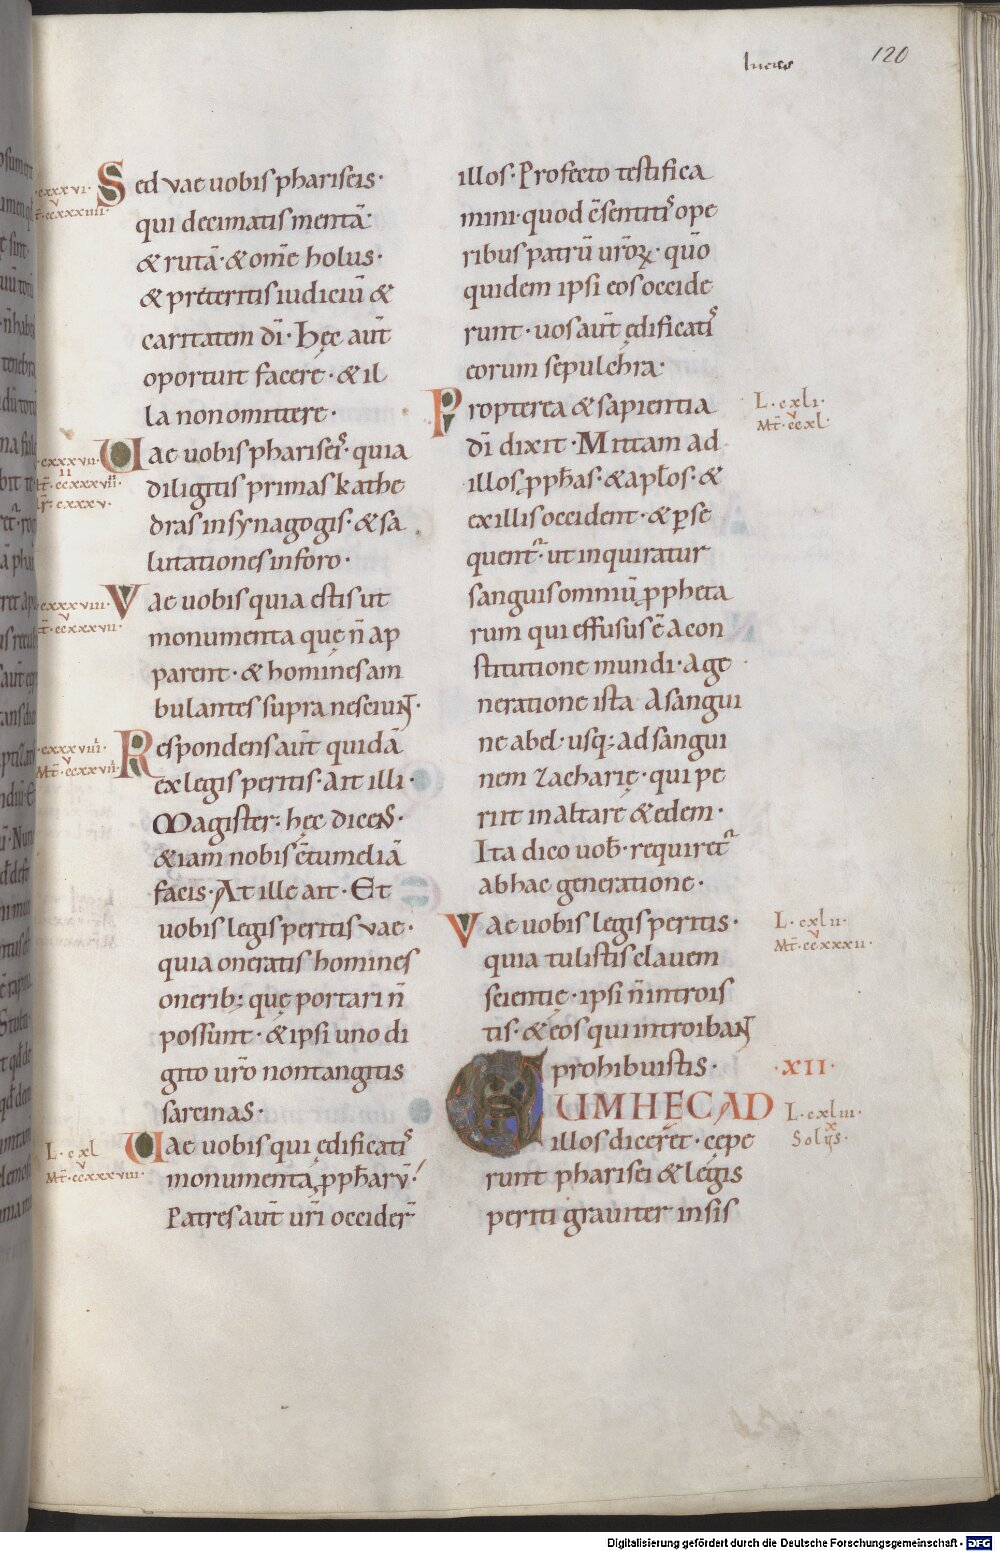 lucas
120
cxxxvi·
ccxxxiiii·
Sed vae uobis phariseis·
qui decimatis mentā·
& rutā· & om̄e holus·
& preteritis iudiciū &
caritatem dī· Hęc aut̄
oportuit facere· & il
la non omittere·
cxxxvii·
Uae uobis pharisei· quia
diligitis primas kathe
dras in synagogis· & sa
lutationes in foro·
cxxxviii·
ccxxxvii·
Vae uobis quia estis ut
monumenta quę n̄ ap
parent· & homines am
bulantes supra nesciunt·
cxxxviiii·
Respondens aut̄ quidā
ex legis peritis· Ait illi·
Magister· hęc dicens·
& iam nobis c̄tumeliā
facis· At ille ait· Et
uobis legis peritis vae·
quia oneratis homines
onerib; quę portari n̄
possunt· & ipsi uno di
gito ur̄o non tangitis
sarcinas·
L· cxl
Mt̄· ccxxxviii·
Uae uobis qui ędificatis
monumenta, pph̄arū!
Patres aut̄ ur̄i occider̄
illos· Profecto testifica
mini· quod c̄sentitis ope
ribus patrū ur̄oꝝ· qm̄o
quidem ipsi eos occide
runt· uos aut̄ ędificatis
eorum sepulchra·
Propterea & sapientia
dī dixit· Mittam ad
illos, pph̄as· & apl̄os· &
ex illis occident· & ꝑse
quentur· ut inquiratur
sanguis omniū, ppheta
rum qui effusus ē a con
stitutione mundi· A ge
neratione ista A sangui
ne abel· usq; ad sangui
nem zacharię· qui pe
riit in altare & edem·
Ita dico uob̄· requiret̄
ab hac generatione·
L· cxli·
Mt̄· ccxl·
Vae uobis legis peritis·
quia tulistis clauem
scientię· ipsi n̄ introis
tis· & eos qui introibant
prohibuistis·
L· cxlii·
Mt̄· ccxxxii·
·XII·
CUM HEC AD
illos diceret· cepe
runt pharisei & legis
periti grauiter insis
L· cxliii·
Digitalisierung gefördert durch die Deutsche Forschungsgemeinschaft - DFG